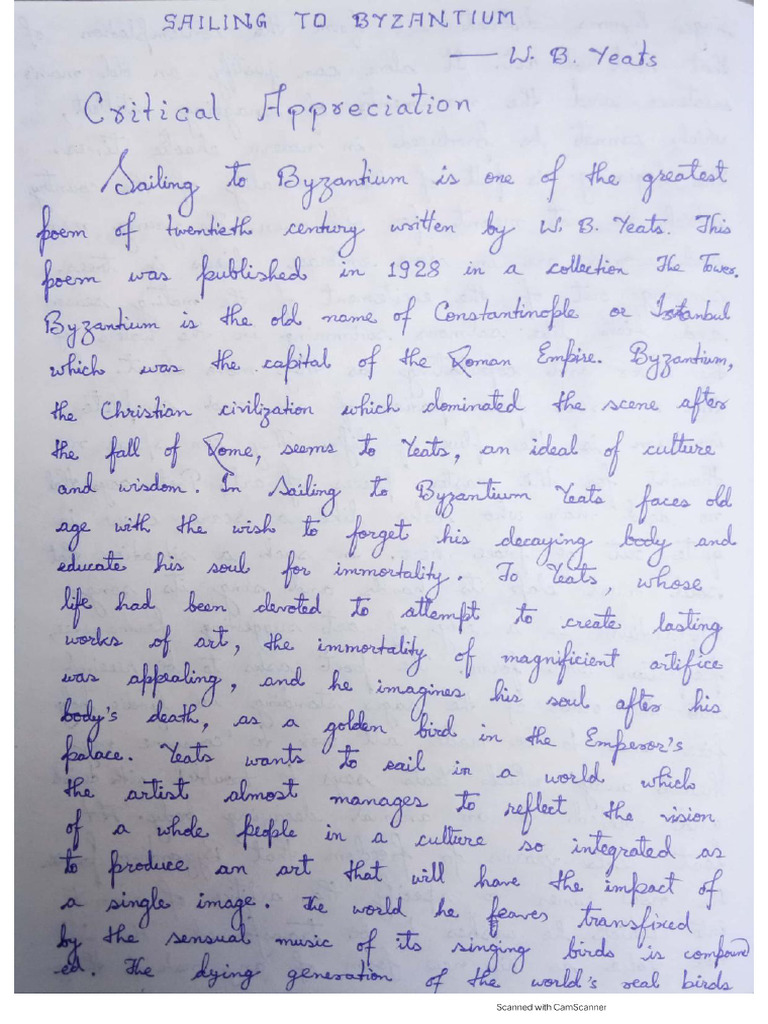 SAILING TO BYZANTIUM
— W. B. Yeats
Critical Appreciation
Sailing to Byzantium is one of the greatest
poem of twentieth century written by W. B. Yeats. This
poem was published in 1928 in a collection The Tower.
Byzantium is the old name of Constantinople or Istanbul
which was the capital of the Roman Empire. Byzantium,
the Christian civilization which dominated the scene after
the fall of Rome, seems to Yeats, an ideal of culture
and wisdom. In Sailing to Byzantium Yeats faces old
age with the wish to forget his decaying body and
educate his soul for immortality. To Yeats, whose
life had been devoted to attempt to create lasting
works of art, the immortality of magnificient artifice
was appealing, and he imagines his soul after his
body's death, as a golden bird in the Emperor's
palace. Yeats wants to sail in a world which
the artist almost manages to reflect the vision
of a whole people in a culture so integrated as
to produce an art that will have the impact of
a single image. The world he leaves transfixed
by the sensual music of its singing birds is compound
ed. The dying generation of the world's real birds
Scanned with CamScanner